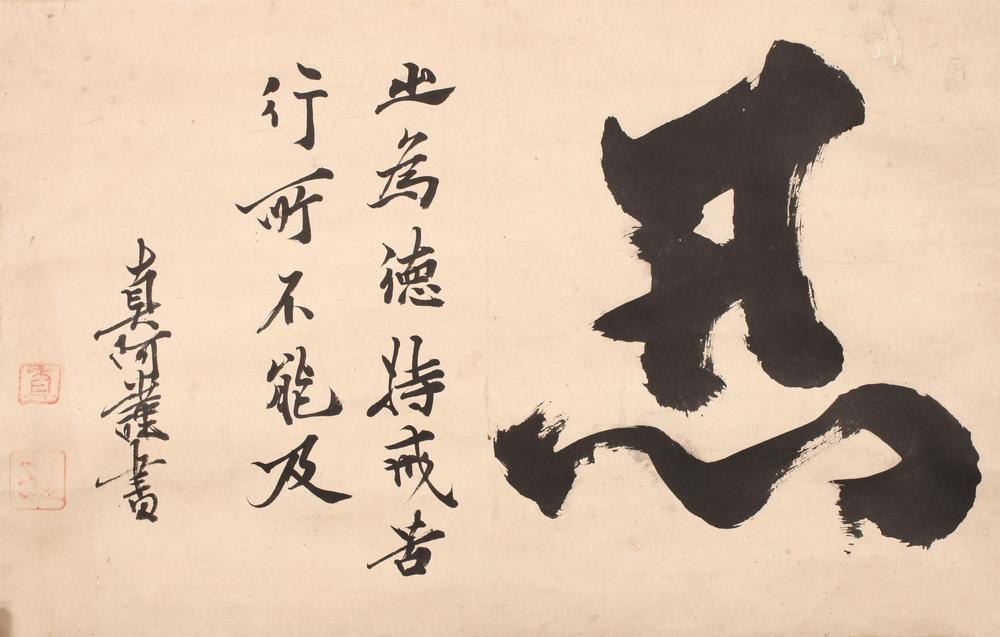 忍
之為德持戒苦
行所不能及
真阿謹書